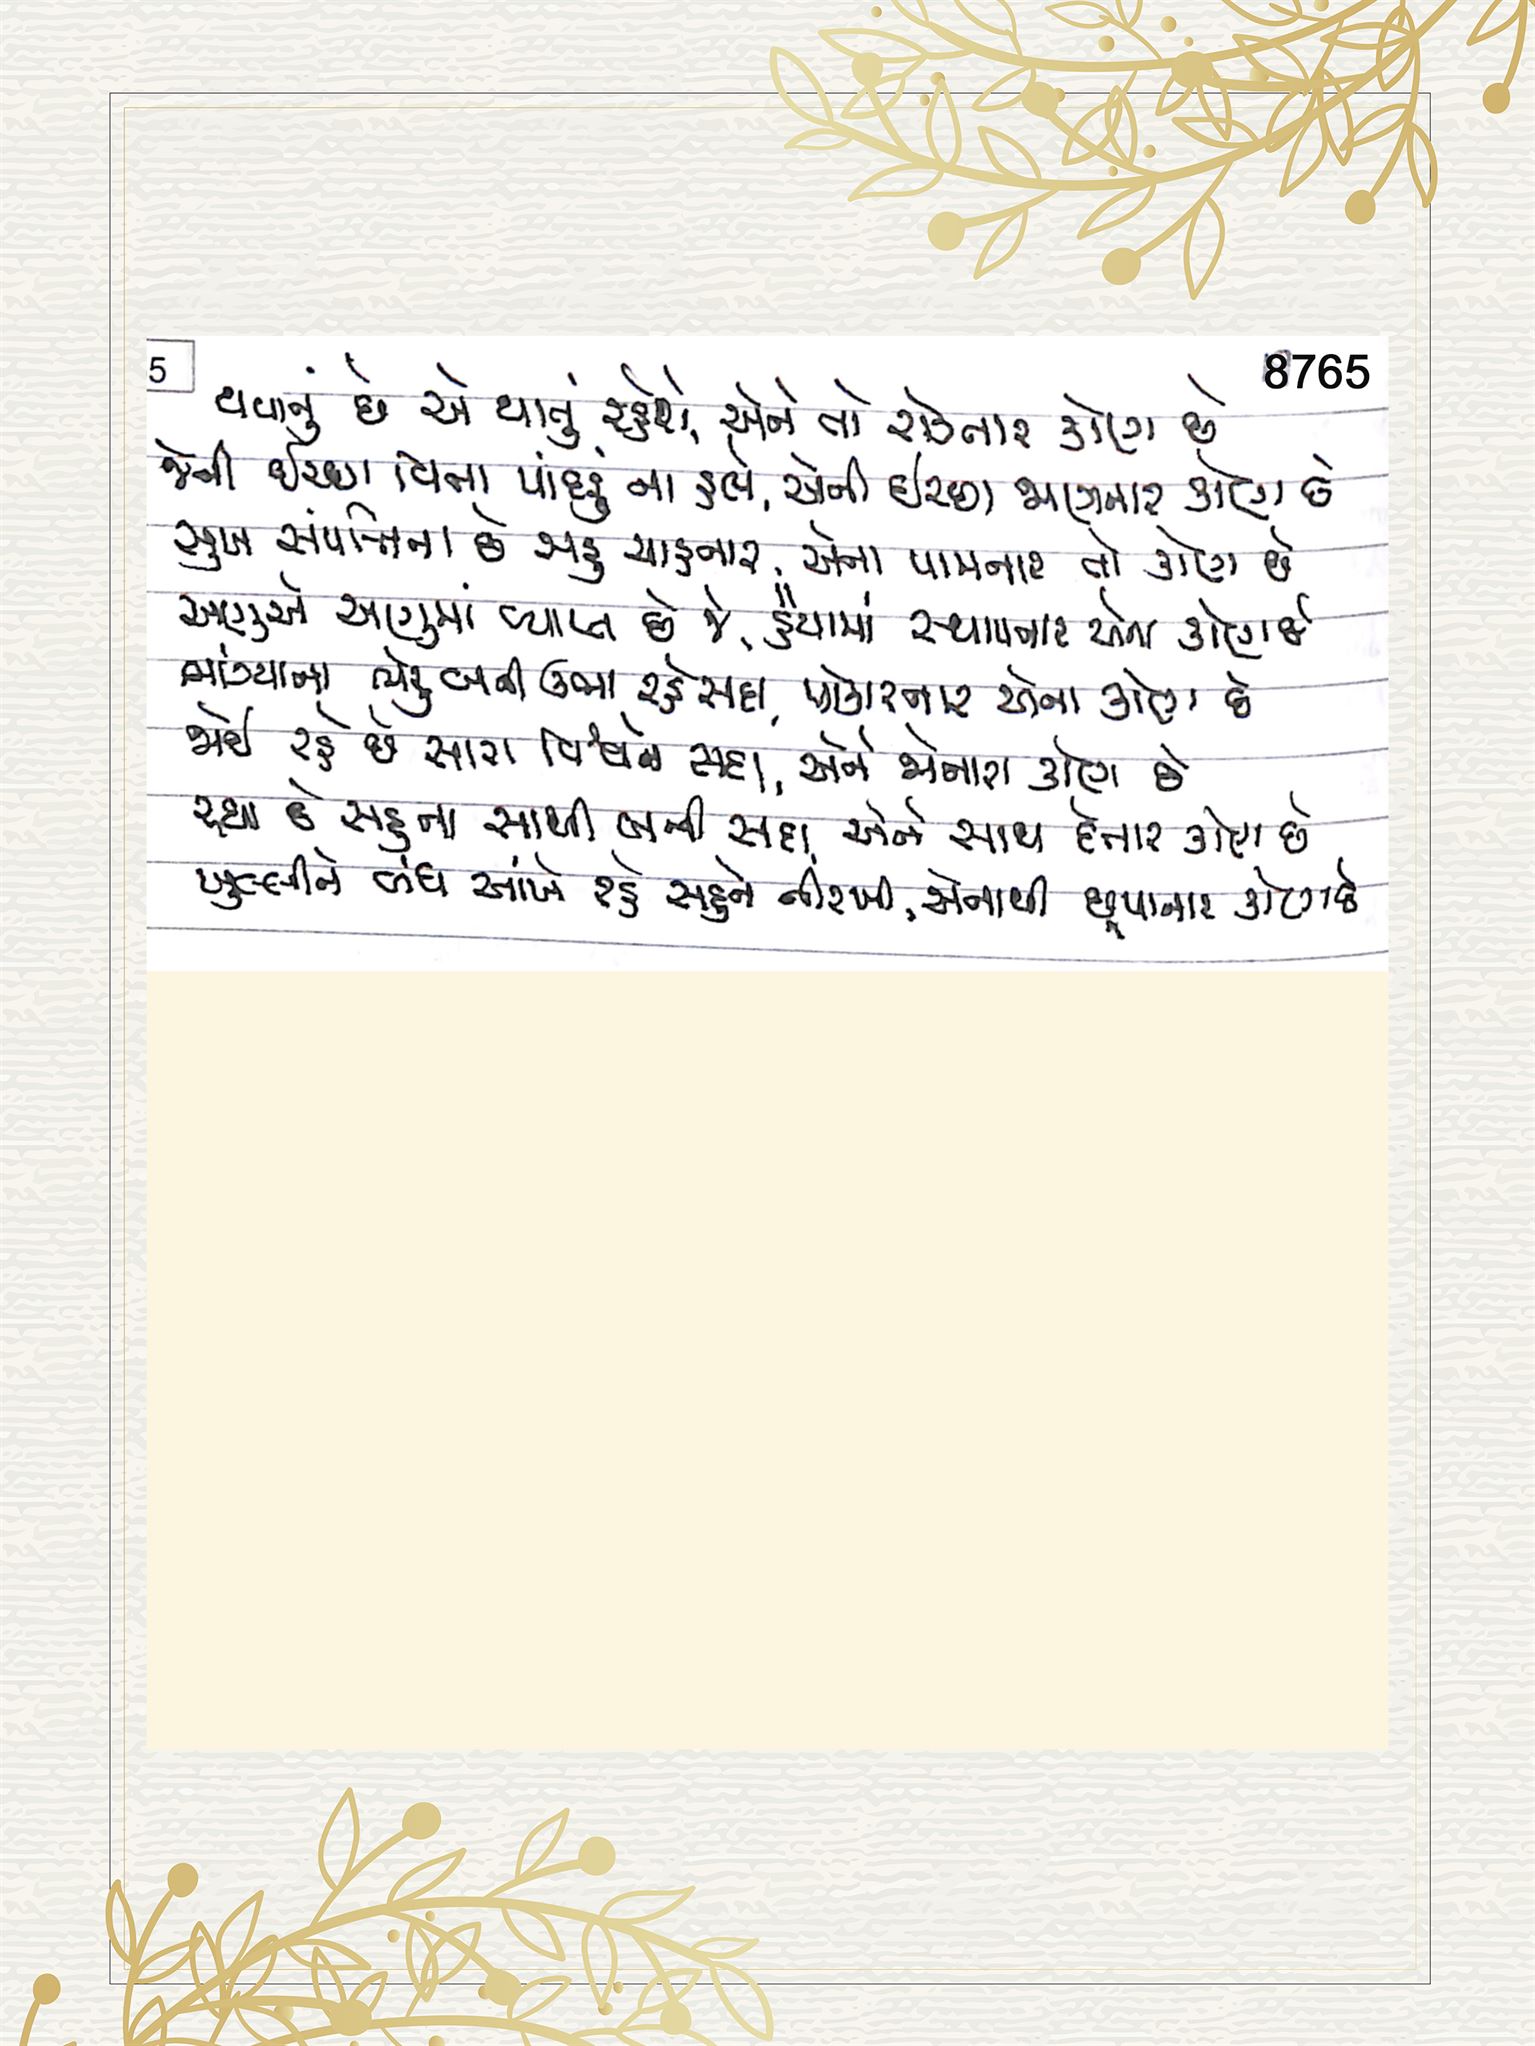 5
8765
થવાનું છે એ થાતું રહેશે, એને તો રોકનાર કોણ છે
જેની ઈચ્છા વિના પાંદડું ના હલે, એની ઈચ્છા જાણનાર કોણ છે
સુખ સંપત્તિના છે સહુ ચાહનાર, એના પામનાર તો કોણ છે
અણુએ અણુમાં વ્યાપ્ત છે જે, હૈયામાં સ્થાપનાર એના કોણ છે
બની ઉભા રહે સદા, પોકારનાર એના કોણ છે
જોઈ રહે છે સારા વિશ્વને સદા, એને જોનારા કોણ છે
રહ્યા છે સહુના સાથી બની સદા, એને સાથ દેનાર કોણ છે
ખુલ્લીને બંધ આંખે રહે સહુને નીરખી, એનાથી છૂપાનાર કોણ છે